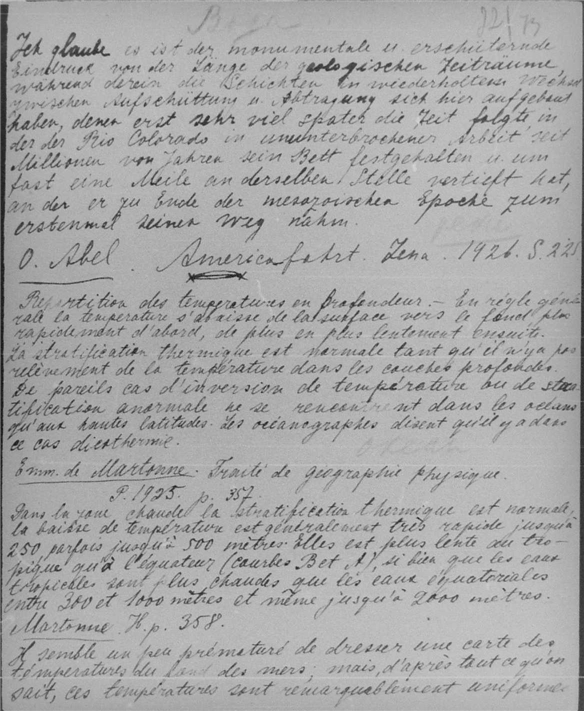 821
Ich glaube es ist der monumentale u. erschütternde
Eindruck von der Länge der geologischen Zeiträume,
während derein die Schichten in wiederholtem Wechsel
zwischen Aufschüttung u. Abtragung sich hier aufgebaut
haben, denen erst sehr viel später die Zeit folgte in
der der Rio Colorado in ununterbrochener Arbeit seit
Millionen von Jahren sein Bett festgehalten u. um
fast eine Meile an derselben Stelle vertieft hat,
an der er zu Ende der mesozoischen Epoche zum
erstenmal seinen Weg nahm.
O. Abel. Americafahrt. Jena. 1926. S. 225
Repartition des temperatures en profondeur. — En régle géné
rale la température s'abaisse de la surface vers le fond plus
rapidement d'abord, de plus en plus lentement ensuite.
La stratification thermique est normale tant qu'il n'y a pas
relèvement de la température dans les couches profondes.
De pareils cas d'inversion de température ou de stra
tification anormale ne se rencontrent dans les océans
qu'aux hautes latitudes. Les océanographes disent qu'il y a dans
ce cas dicothermie.
Emm. de Martonne. Traité de geographie physique.
P. 1925. p. 357.
Dans la zone chaude la stratification thermique est normale,
la baisse de température est généralement très rapide jusqu'à
250 parfois jusqu'à 500 mètres. Elles est plus lente du tro-
pique qu'à l'équateur (courbes B et A), si bien que les eaux
tropicales sont plus chaudes que les eaux équatoriales
entre 300 et 1000 mètres et même jusqu'à 2000 mètres.
Martonne. H. p. 358.
Il semble un peu prématuré de dresser une carte des
températures du fond des mers; mais, d'après tout ce qu'on
sait, ces températures sont remarquablement uniformes